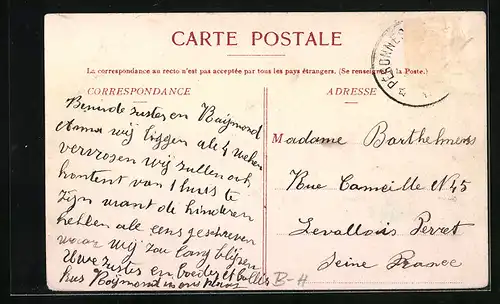 CARTE POSTALE
La correspondance au recto n'est pas acceptée par tous les pays étrangers. (Se renseigner à la Poste.)
CORRESPONDANCE
Beminde zuster en Raijmond
Anna wij liggen ale 4 weken
vervrosen wij zullen ook
kontent van thuis te
zijn want de kinderen
hebben ale eens geschreven
waar wij zou lang blijven
Uwe zuster en broeder
kus Raijmond in ons plaats
B-H
ADRESSE
PÉRONNES
Madame Barthelmess
Rue Cameille N 45
Levallois Perret
Seine France